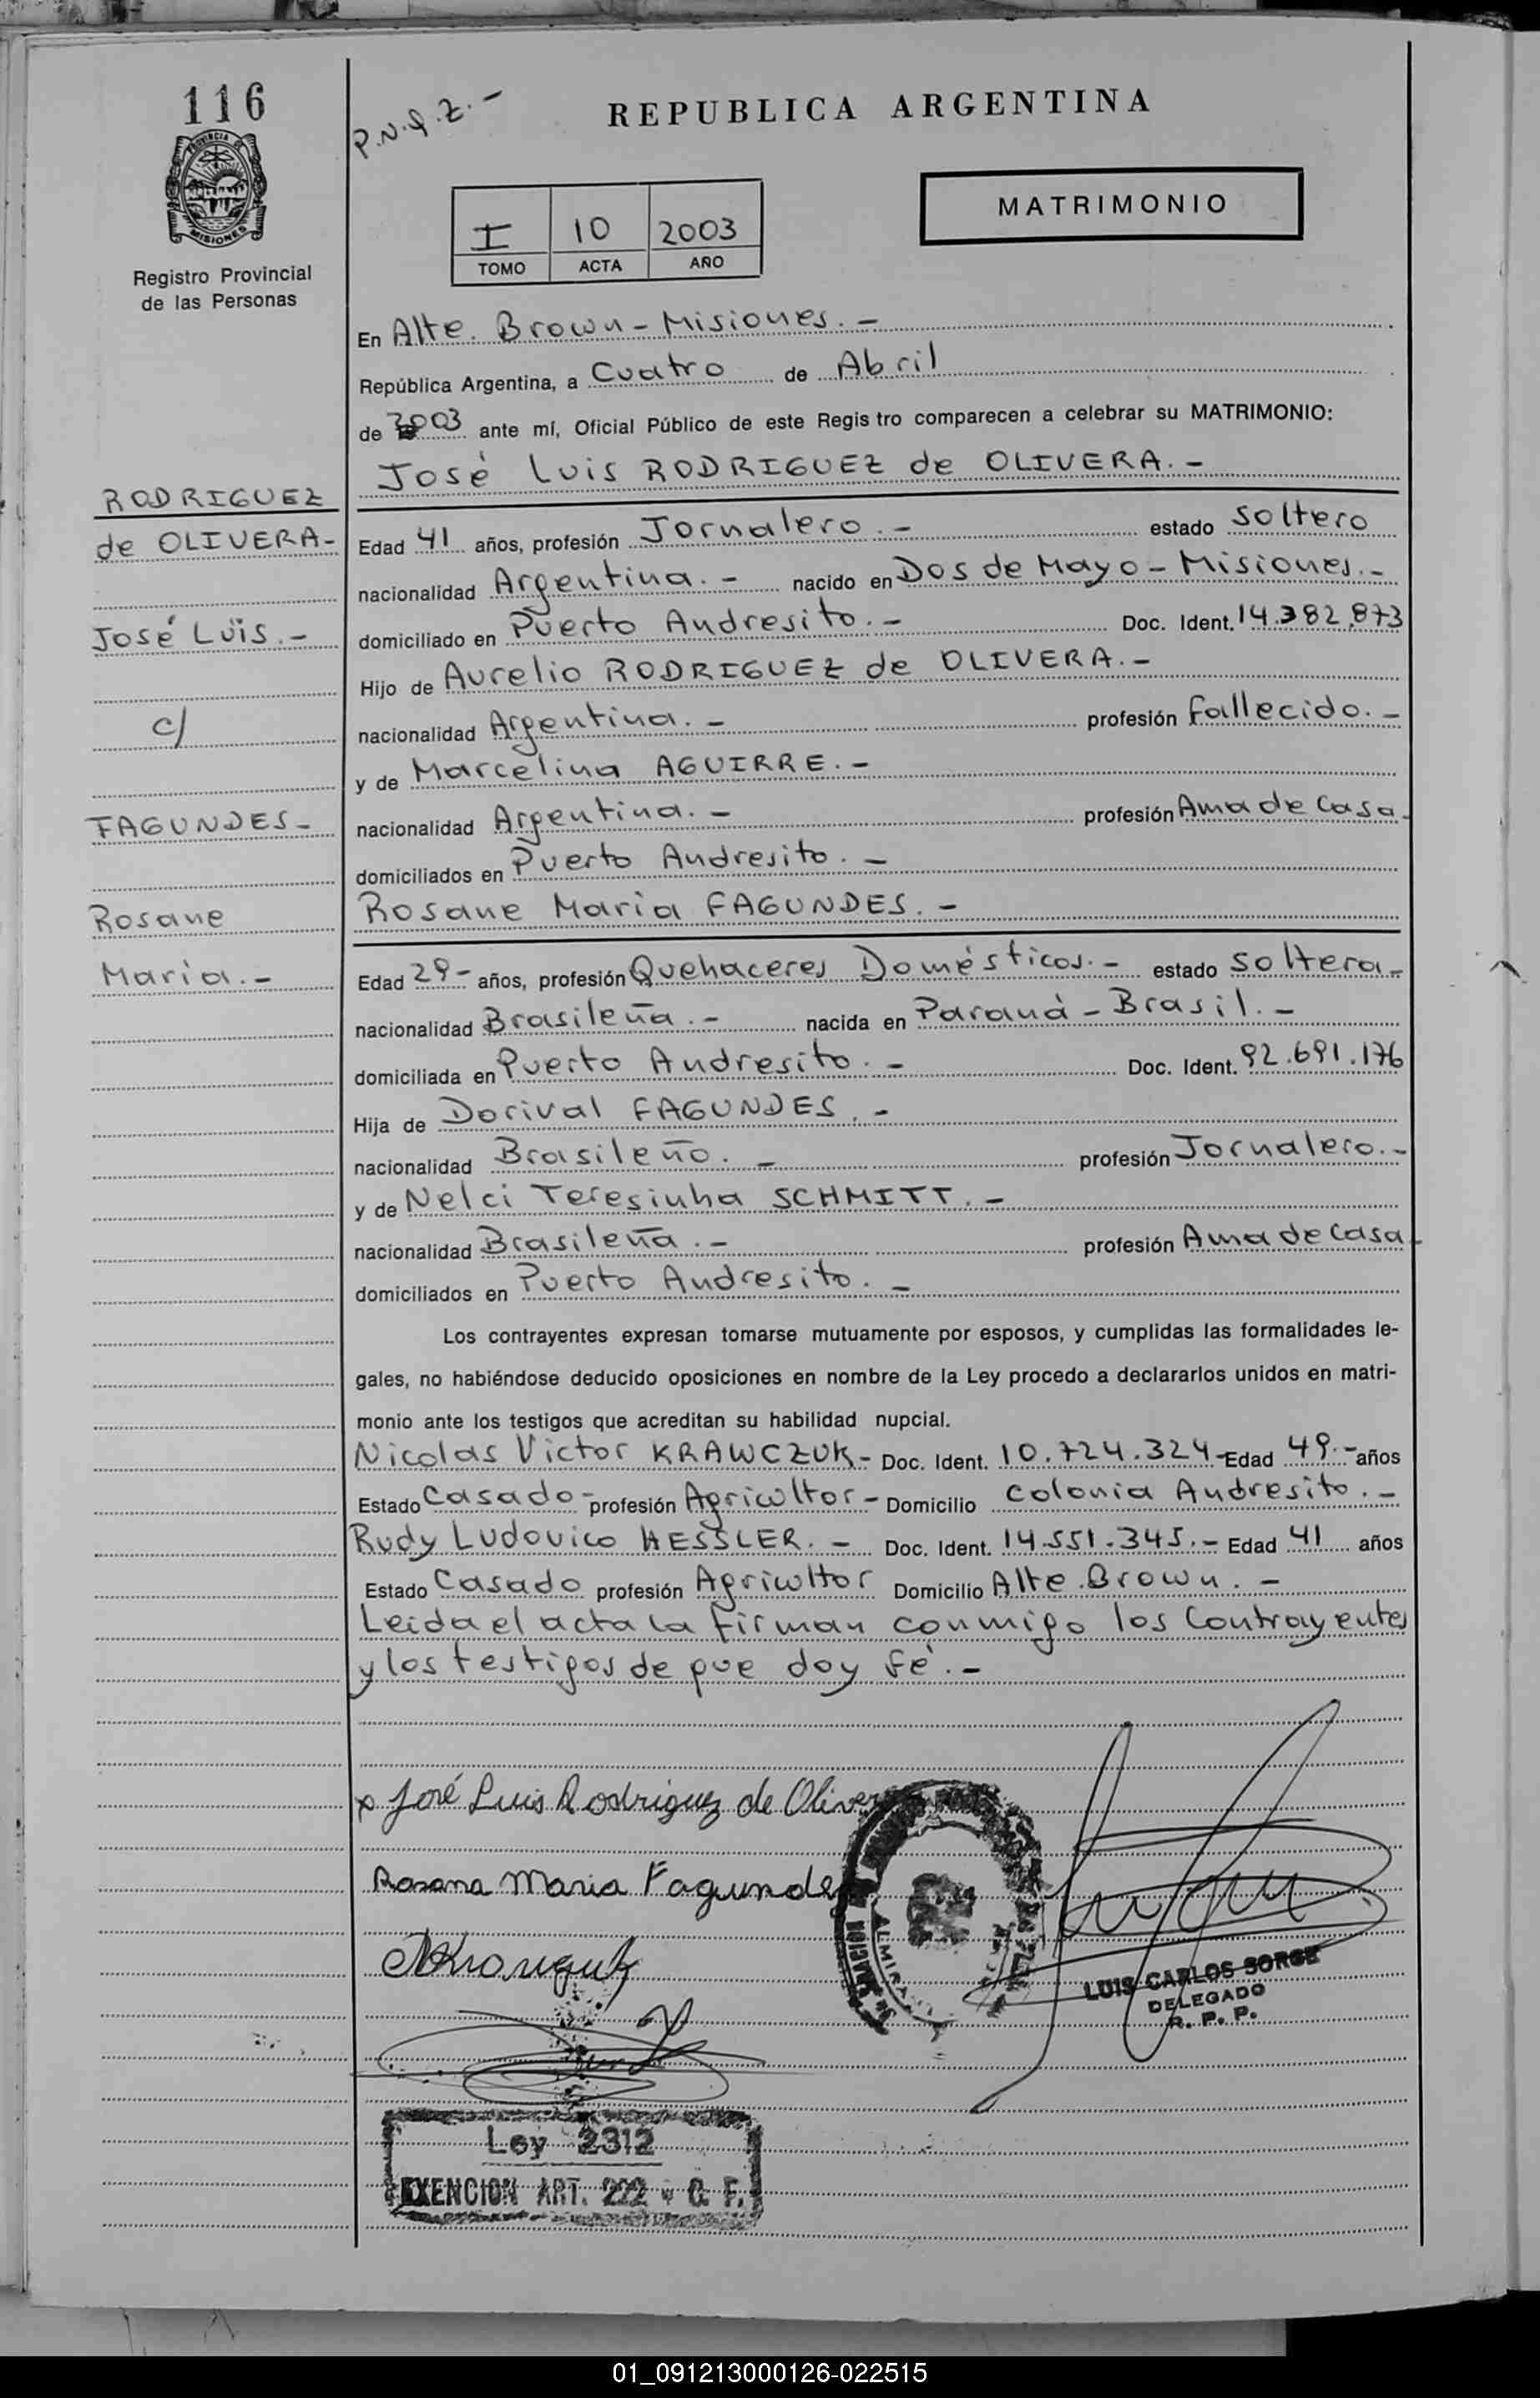 116
P.N.Q.Z. -
REPUBLICA ARGENTINA
PROVINCIA DE
MISIONES
Registro Provincial
de las Personas
I 10 2003
TOMO ACTA AÑO
MATRIMONIO
En Alte. Brown - Misiones. -
República Argentina, a Cuatro de Abril
de 2003 ante mí, Oficial Público de este Regis tro comparecen a celebrar su MATRIMONIO:
José Luis RODRIGUEZ de OLIVERA. -
RODRIGUEZ
de OLIVERA -
José Luis. -
c/
FAGUNDES -
Rosane
María. -
Edad 41 años, profesión Jornalero. - estado soltero
nacionalidad Argentina. - nacido en Dos de Mayo - Misiones. -
domiciliado en Puerto Andresito. - Doc. Ident. 14.382.873
Hijo de Aurelio RODRIGUEZ de OLIVERA. -
nacionalidad Argentina. - profesión fallecido. -
y de Marcelina AGUIRRE. -
nacionalidad Argentina. - profesión Ama de Casa.
domiciliados en Puerto Andresito. -
Rosane María FAGUNDES. -
Edad 29 - años, profesión Quehaceres Domésticos. - estado soltera -
nacionalidad Brasileña. - nacida en Paraná - Brasil. -
domiciliada en Puerto Andresito. - Doc. Ident. 92.691.176
Hija de Dorival FAGUNDES. -
nacionalidad Brasileño. - profesión Jornalero. -
y de Nelci Teresinha SCHMITT. -
nacionalidad Brasileña. - profesión Ama de Casa -
domiciliados en Puerto Andresito. -
Los contrayentes expresan tomarse mutuamente por esposos, y cumplidas las formalidades le-
gales, no habiéndose deducido oposiciones en nombre de la Ley procedo a declararlos unidos en matri-
monio ante los testigos que acreditan su habilidad nupcial.
Nicolas Victor KRAWCZUK - Doc. Ident. 10.724.324 - Edad 49. - años
Estado Casado - profesión Agricultor - Domicilio Colonia Andresito. -
Rudy Ludovico HESSLER. - Doc. Ident. 14.551.345. - Edad 41 años
Estado Casado profesión Agricultor Domicilio Alte. Brown. -
Leida el acta la firman conmigo los Contrayentes
y los testigos de que doy fé. -
x José Luis Rodriguez de Olivera
Rosana Maria Fagundes
ALMIRA
LUIS CARLOS SORGE
DELEGADO
R. P. P.
Ley 2312
EXENCION ART. 222 - C. F.
01_091213000126-022515